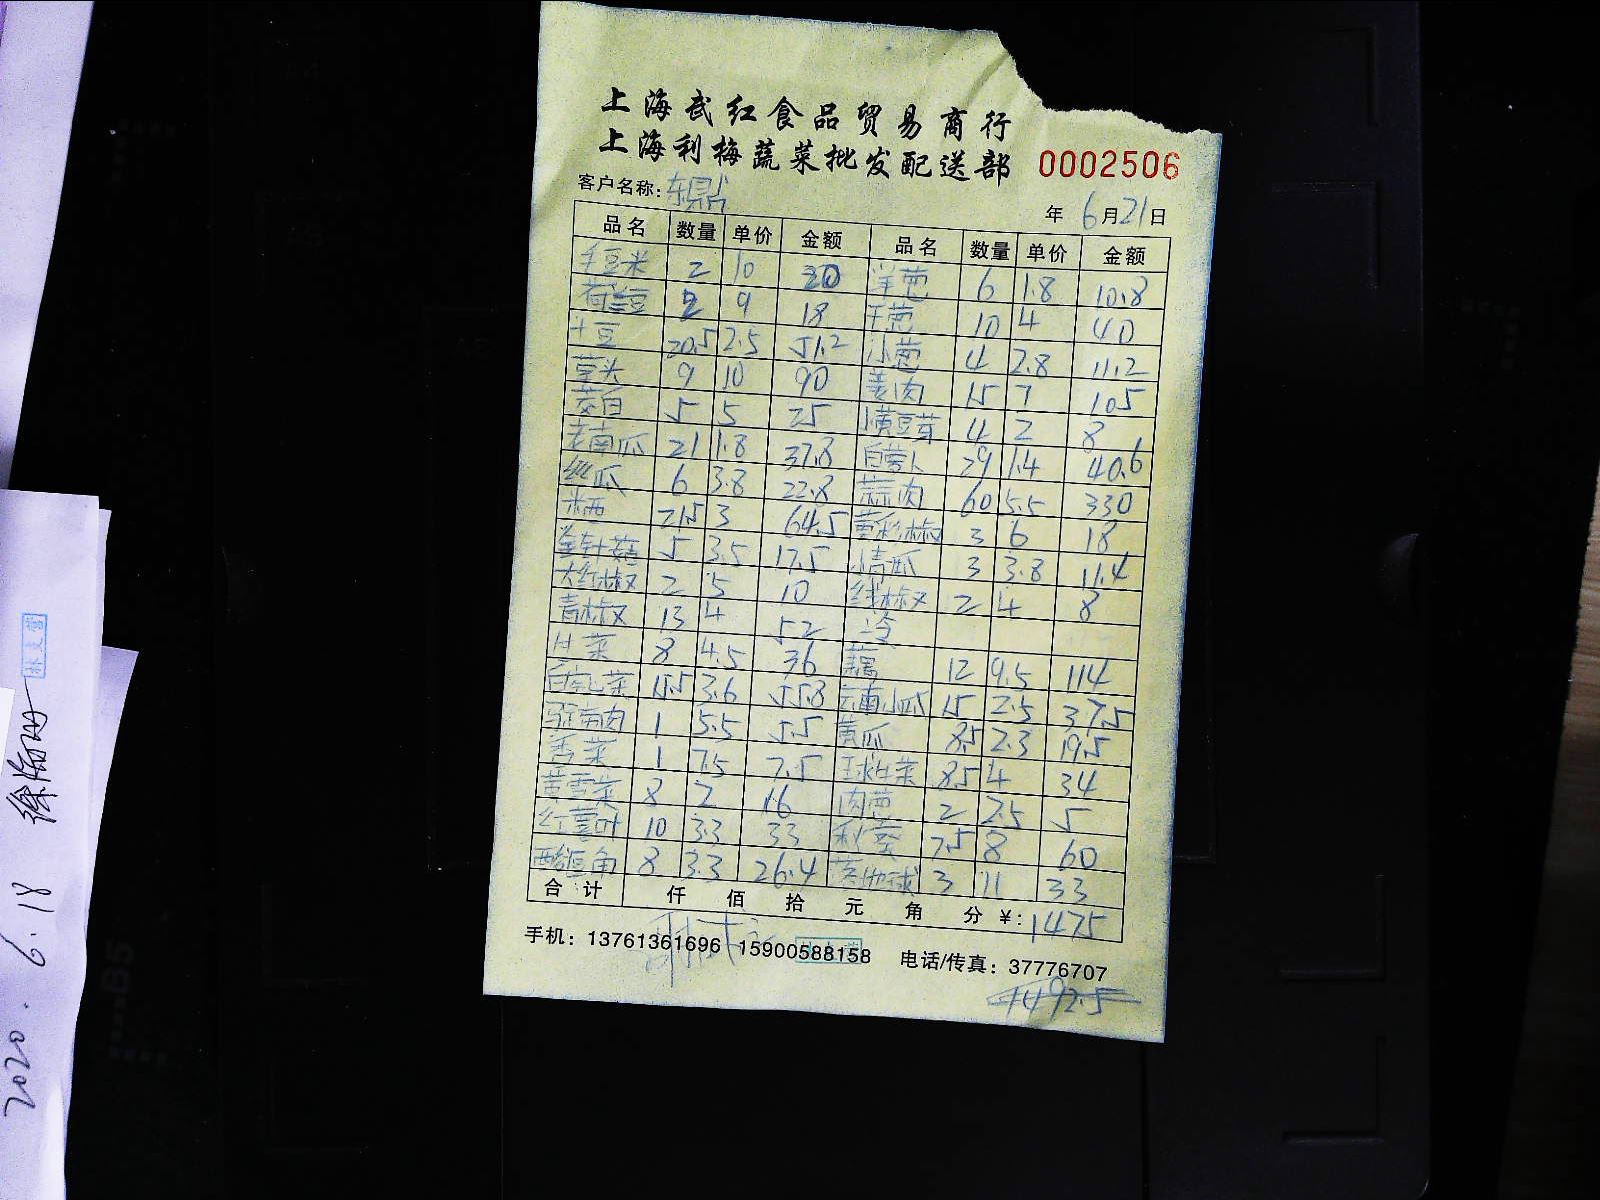 上海武红食品贸易商行
上海利梅蔬菜批发配送部 0002506
客户名称: 东鼎 年 6月21日
品名 数量 单价 金额 品名 数量 单价 金额
毛豆米 2 10 20 洋葱 6 1.8 10.8
荷兰豆 2 9 18 干葱 10 4 40
土豆 20.5 2.5 51.2 小葱 4 2.8 11.2
9 10 90 姜肉 15 7 105
茭白 5 5 25 小黄豆芽 4 2 8
老南瓜 21 1.8 37.8 白萝卜 29 1.4 40.6
丝瓜 6 3.8 22.8 蒜肉 60 5.5 330
21.5 3 64.5 黄彩椒 3 6 18
金针菇 5 3.5 17.5 小青瓜 3 3.8 11.4
大红椒 2 5 10 线椒 2 4 8
青椒 13 4 52
8 4.5 36 藕 12 9.5 114
15.5 3.6 55.8 云南小瓜 15 2.5 37.5
1 5.5 5.5 黄瓜 8.5 2.3 19.5
香菜 1 7.5 7.5 球生菜 8.5 4 34
8 2 16 肉葱 2 2.5 5
红薯叶 10 3.3 33 秋葵 7.5 8 60
8 3.3 26.4 3 11 33
合计 仟 佰 拾 元 角 分 ¥: 1475
手机: 13761361696 15900588158 电话/传真: 37776707
1492.5
2020.6.18
B5